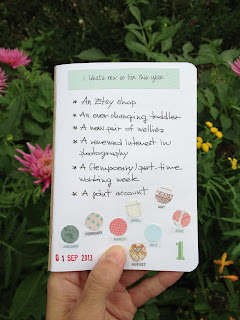 What's new so far this year
* An Etsy shop
* An ever changing toddler
* A new pair of wellies
* A renewed interest in
photography
* A (temporary) part-time
working week
* A
account
APRIL
MAY
JANUARY
FEBRUARY
MARCH
JULY
JUNE
AUGUST
0 1 SEP 2013
1